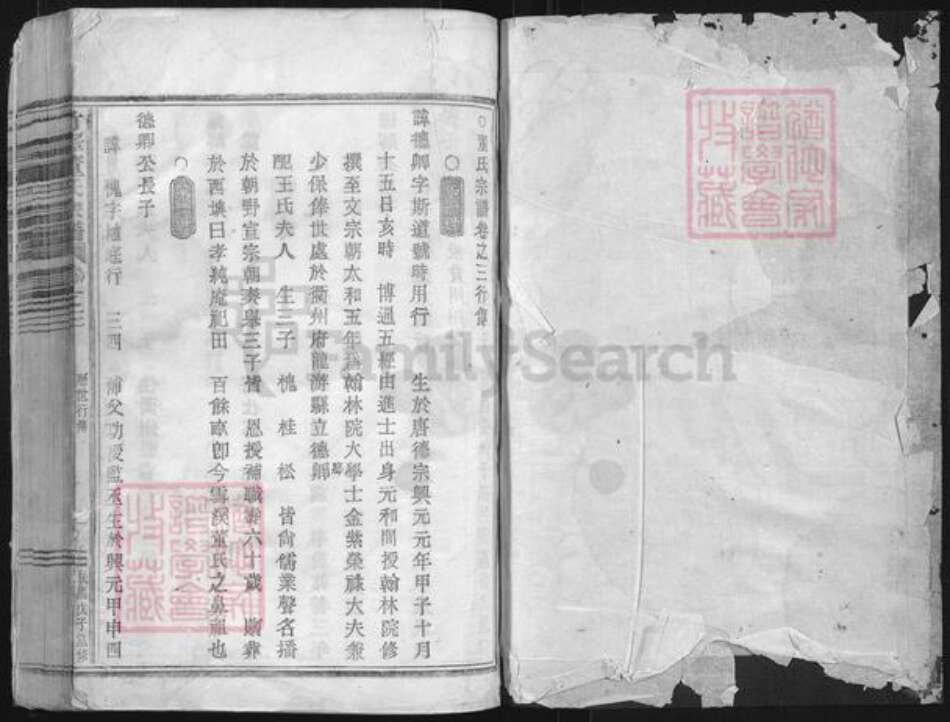 董氏宗譜卷之三行傳
諱德卿字斯道號時用行 生於唐德宗興元元年甲子十月
十五日亥時 博通五經由進士出身元和間授翰林院修
撰至文宗朝太和五年爲翰林院大學士金紫榮祿大夫兼
少保偉世處於衢州府龍游縣立德卿
配王氏夫人 生三子 槐 桂 松 皆尙儒業聲名播
於朝野宣宗朝奏舉三子皆 恩授補職壽六十歲 葬
於西 曰孝純庵祀田 百餘 卽今雲溪董氏之鼻祖也
德卿公長子
諱 槐字 廷行 三四 補父功 丞生於興元甲申四
歷世行傳
遺他家
譜學會
收藏
遺他家
譜學會
收藏
FamilySearch